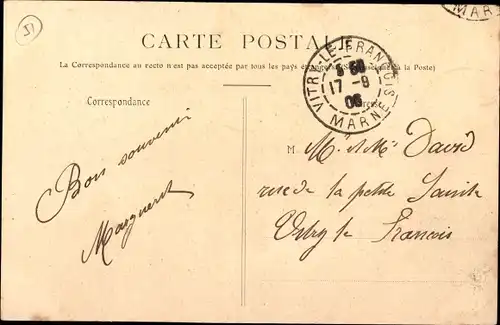 51
CARTE POSTALE
La Correspondance au recto n'est pas acceptée par tous les pays étrangers (Se renseigner à la Poste)
VITRY-LE-FRANÇOIS
17 -9
06
MARNE
MARN
Correspondance
Adresse
Bon souvenir
Marguerit
M. M. et Me David
rue de la petite Sainte
Vitry le François